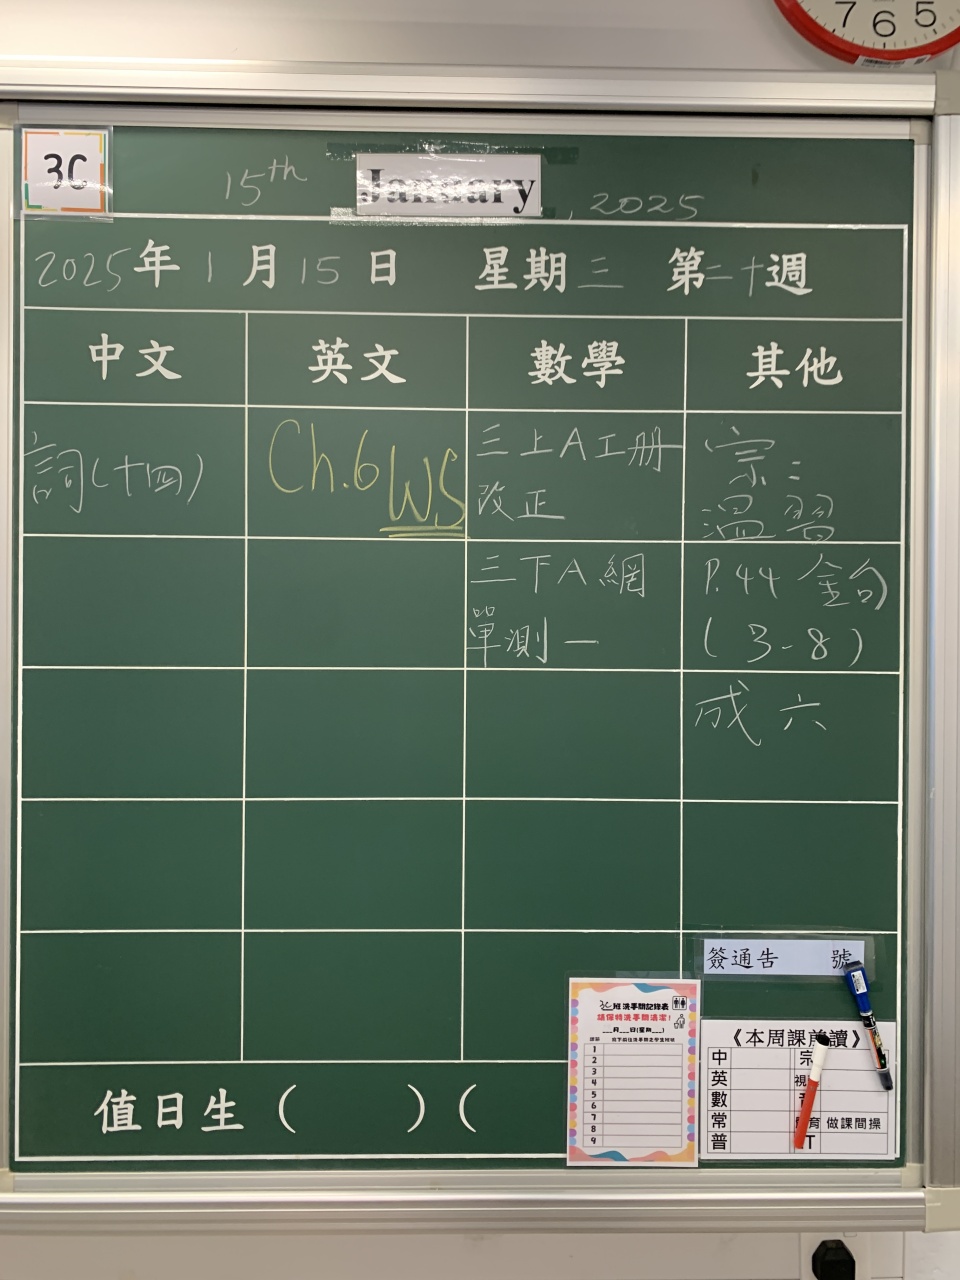 7 6 5
3C
15th January, 2025
2025年1月15日 星期三 第二十週
中文 英文 數學 其他
詞(十四)
Ch.6 WS
三上A工冊
改正
三下A網
單測一
宗:
溫習
P.44 金句
(3-8)
成六
簽通告 號
3C班洗手間記錄表
請保持洗手間清潔!
___月___日(星期___)
1
2
3
4
5
6
7
8
9
《本周課前讀》
中 宗
英 視
數 音
常 體育 做課間操
普 IT
值日生( )(